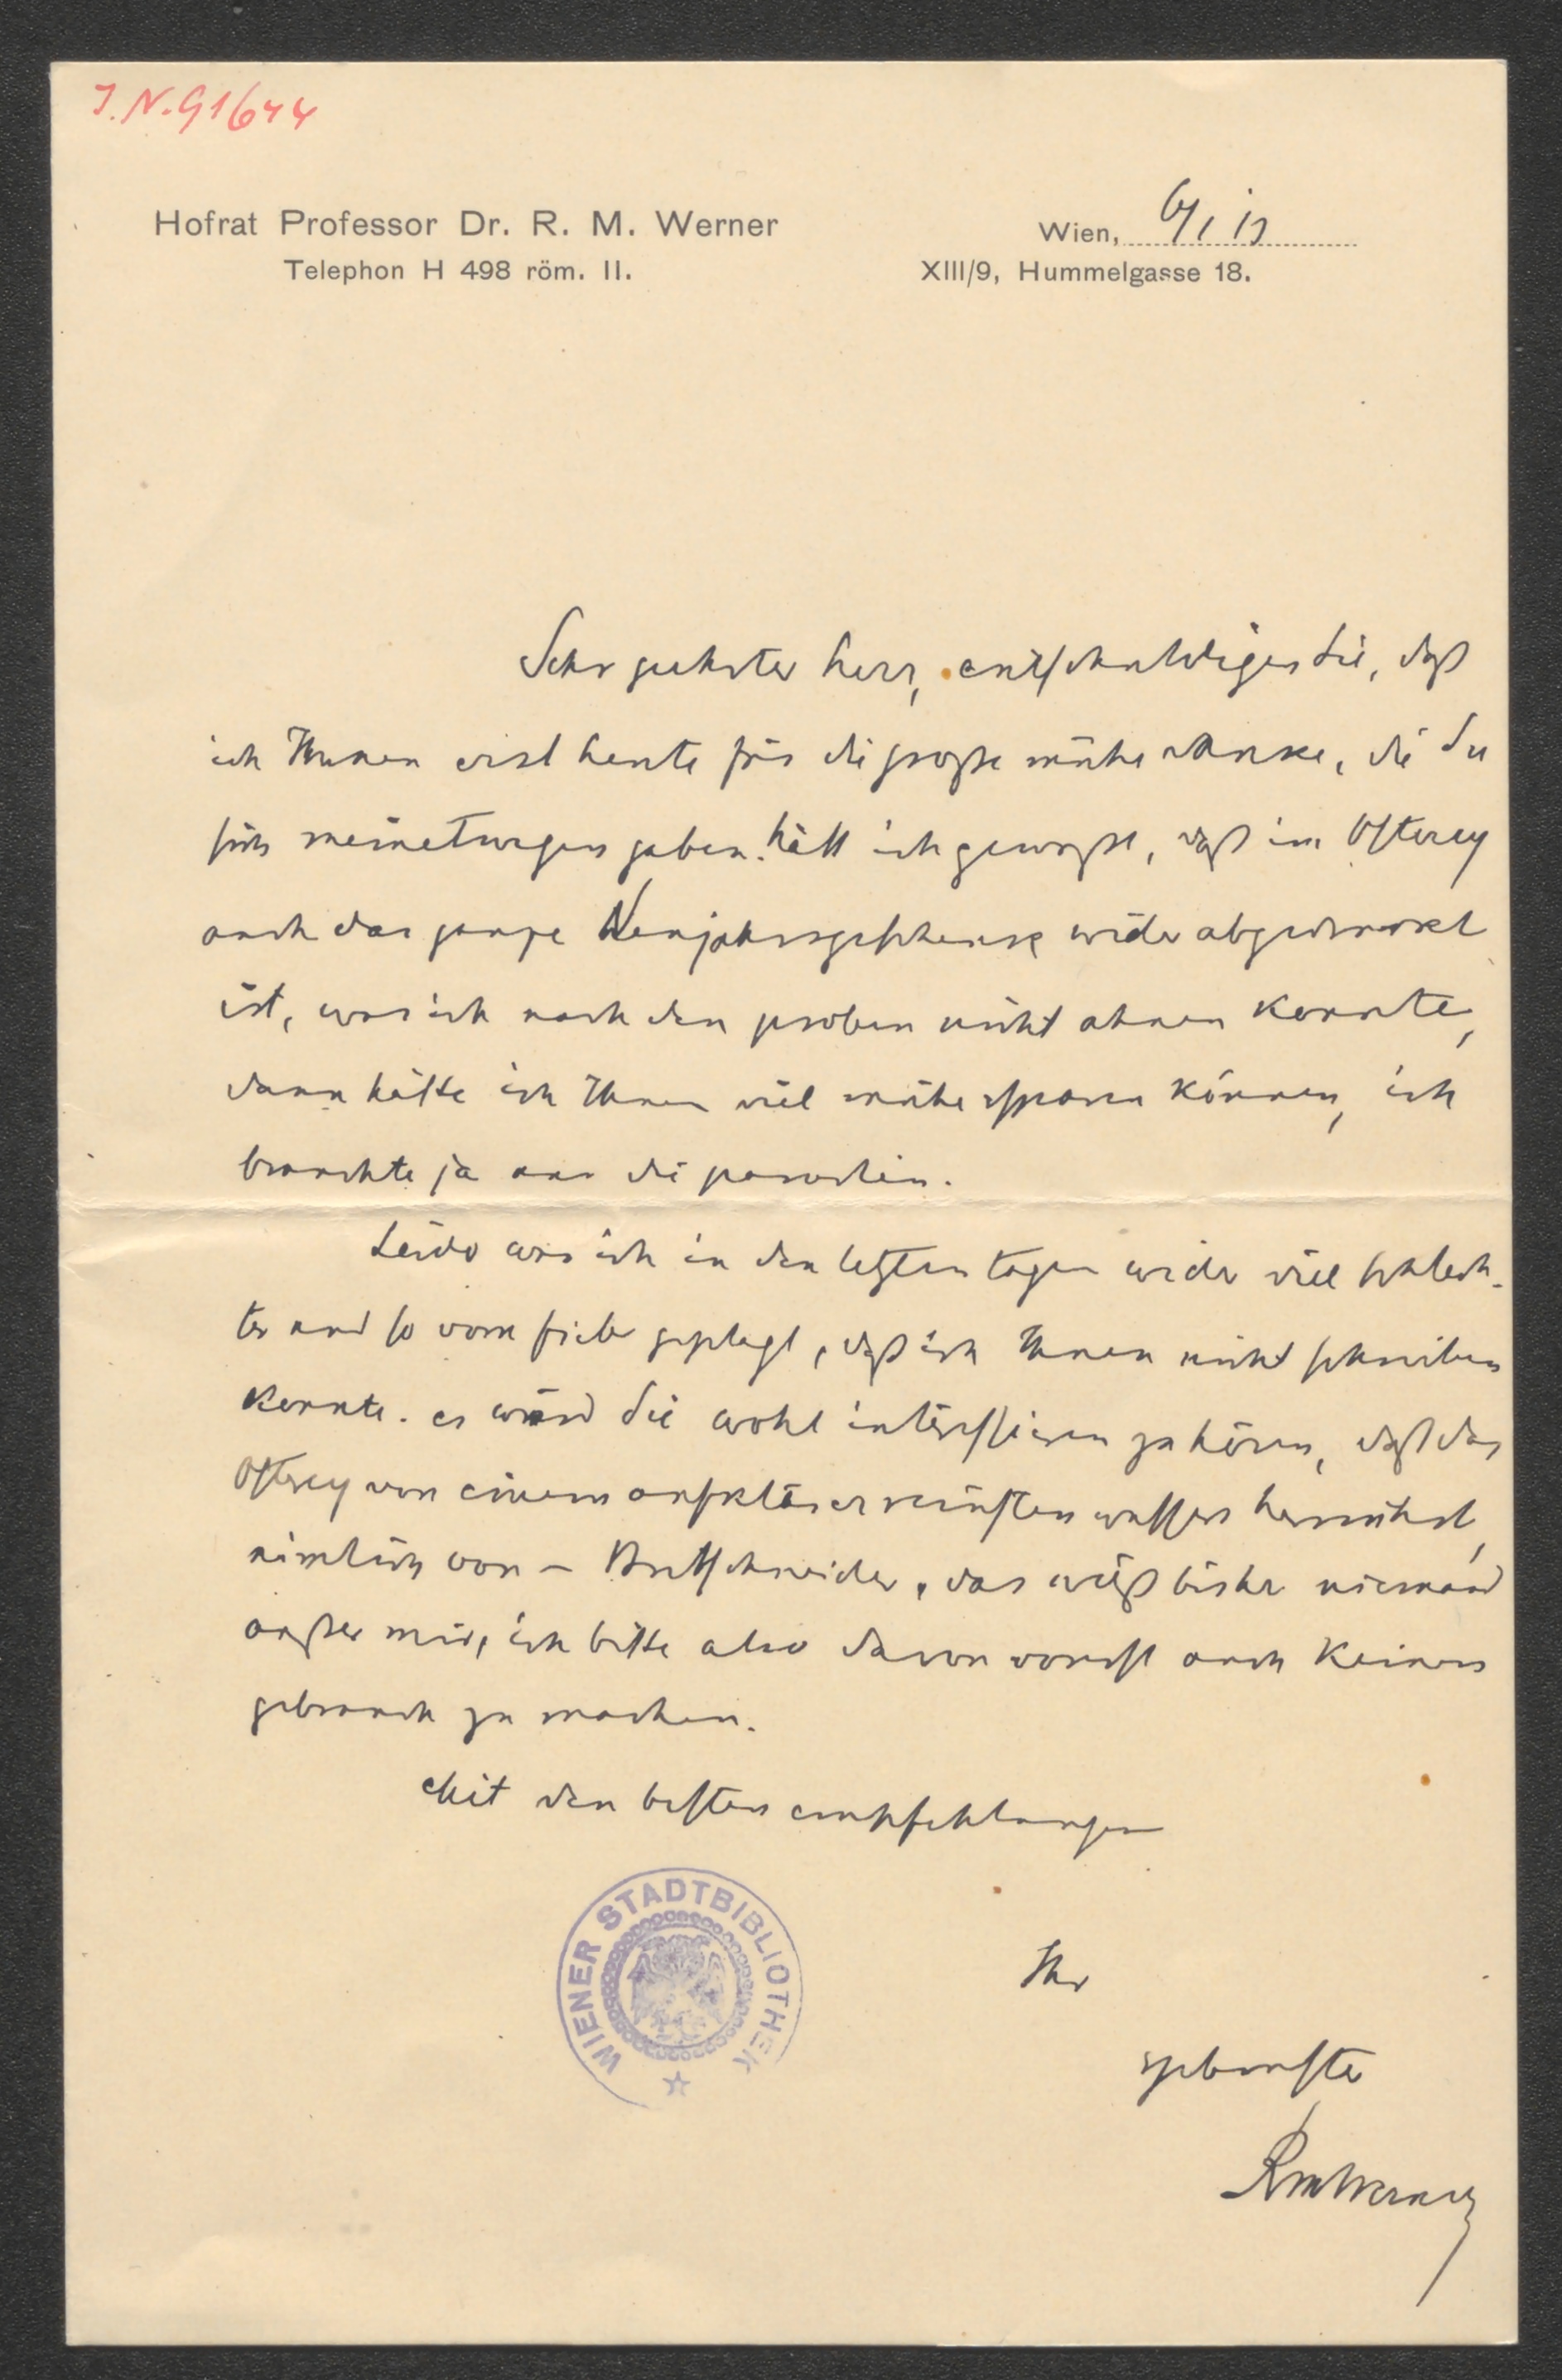 J. N. 91644
Hofrat Professor Dr. R. M. Werner
Telephon H 498 röm. II.
Wien, 6/1 13
XIII/9, Hummelgasse 18.
Sehr geehrter herr, entschuldigen Sie, daß
ich Ihnen erst heute für die große mühe danke, die Sie
sich meinetwegen gaben. hätt ich gewußt, daß im Osterey
auch das ganze Neujahrsgeschenk wider abgedruckt
ist, was ich nach den proben nicht ahnen konnte,
dann hätte ich Ihnen viel mühe sparen können, ich
brauchte ja nur die parodien.
Leider war ich in den letzten tagen wider viel schlech-
ter und so vom fieber geplagt, daß ich Ihnen nicht schreiben
konnte. es wird Sie wohl interessieren zu hören, daß das
Osterey von einem aufklärer reinsten wassers herrührt,
nämlich von – Bretschneider, das weiß bisher niemand
außer mir, ich bitte also davon vorerst auch keinen
gebrauch zu machen.
Mit den besten empfehlungen
Ihr
ergebenster
RMWerner
WIENER STADTBIBLIOTHEK